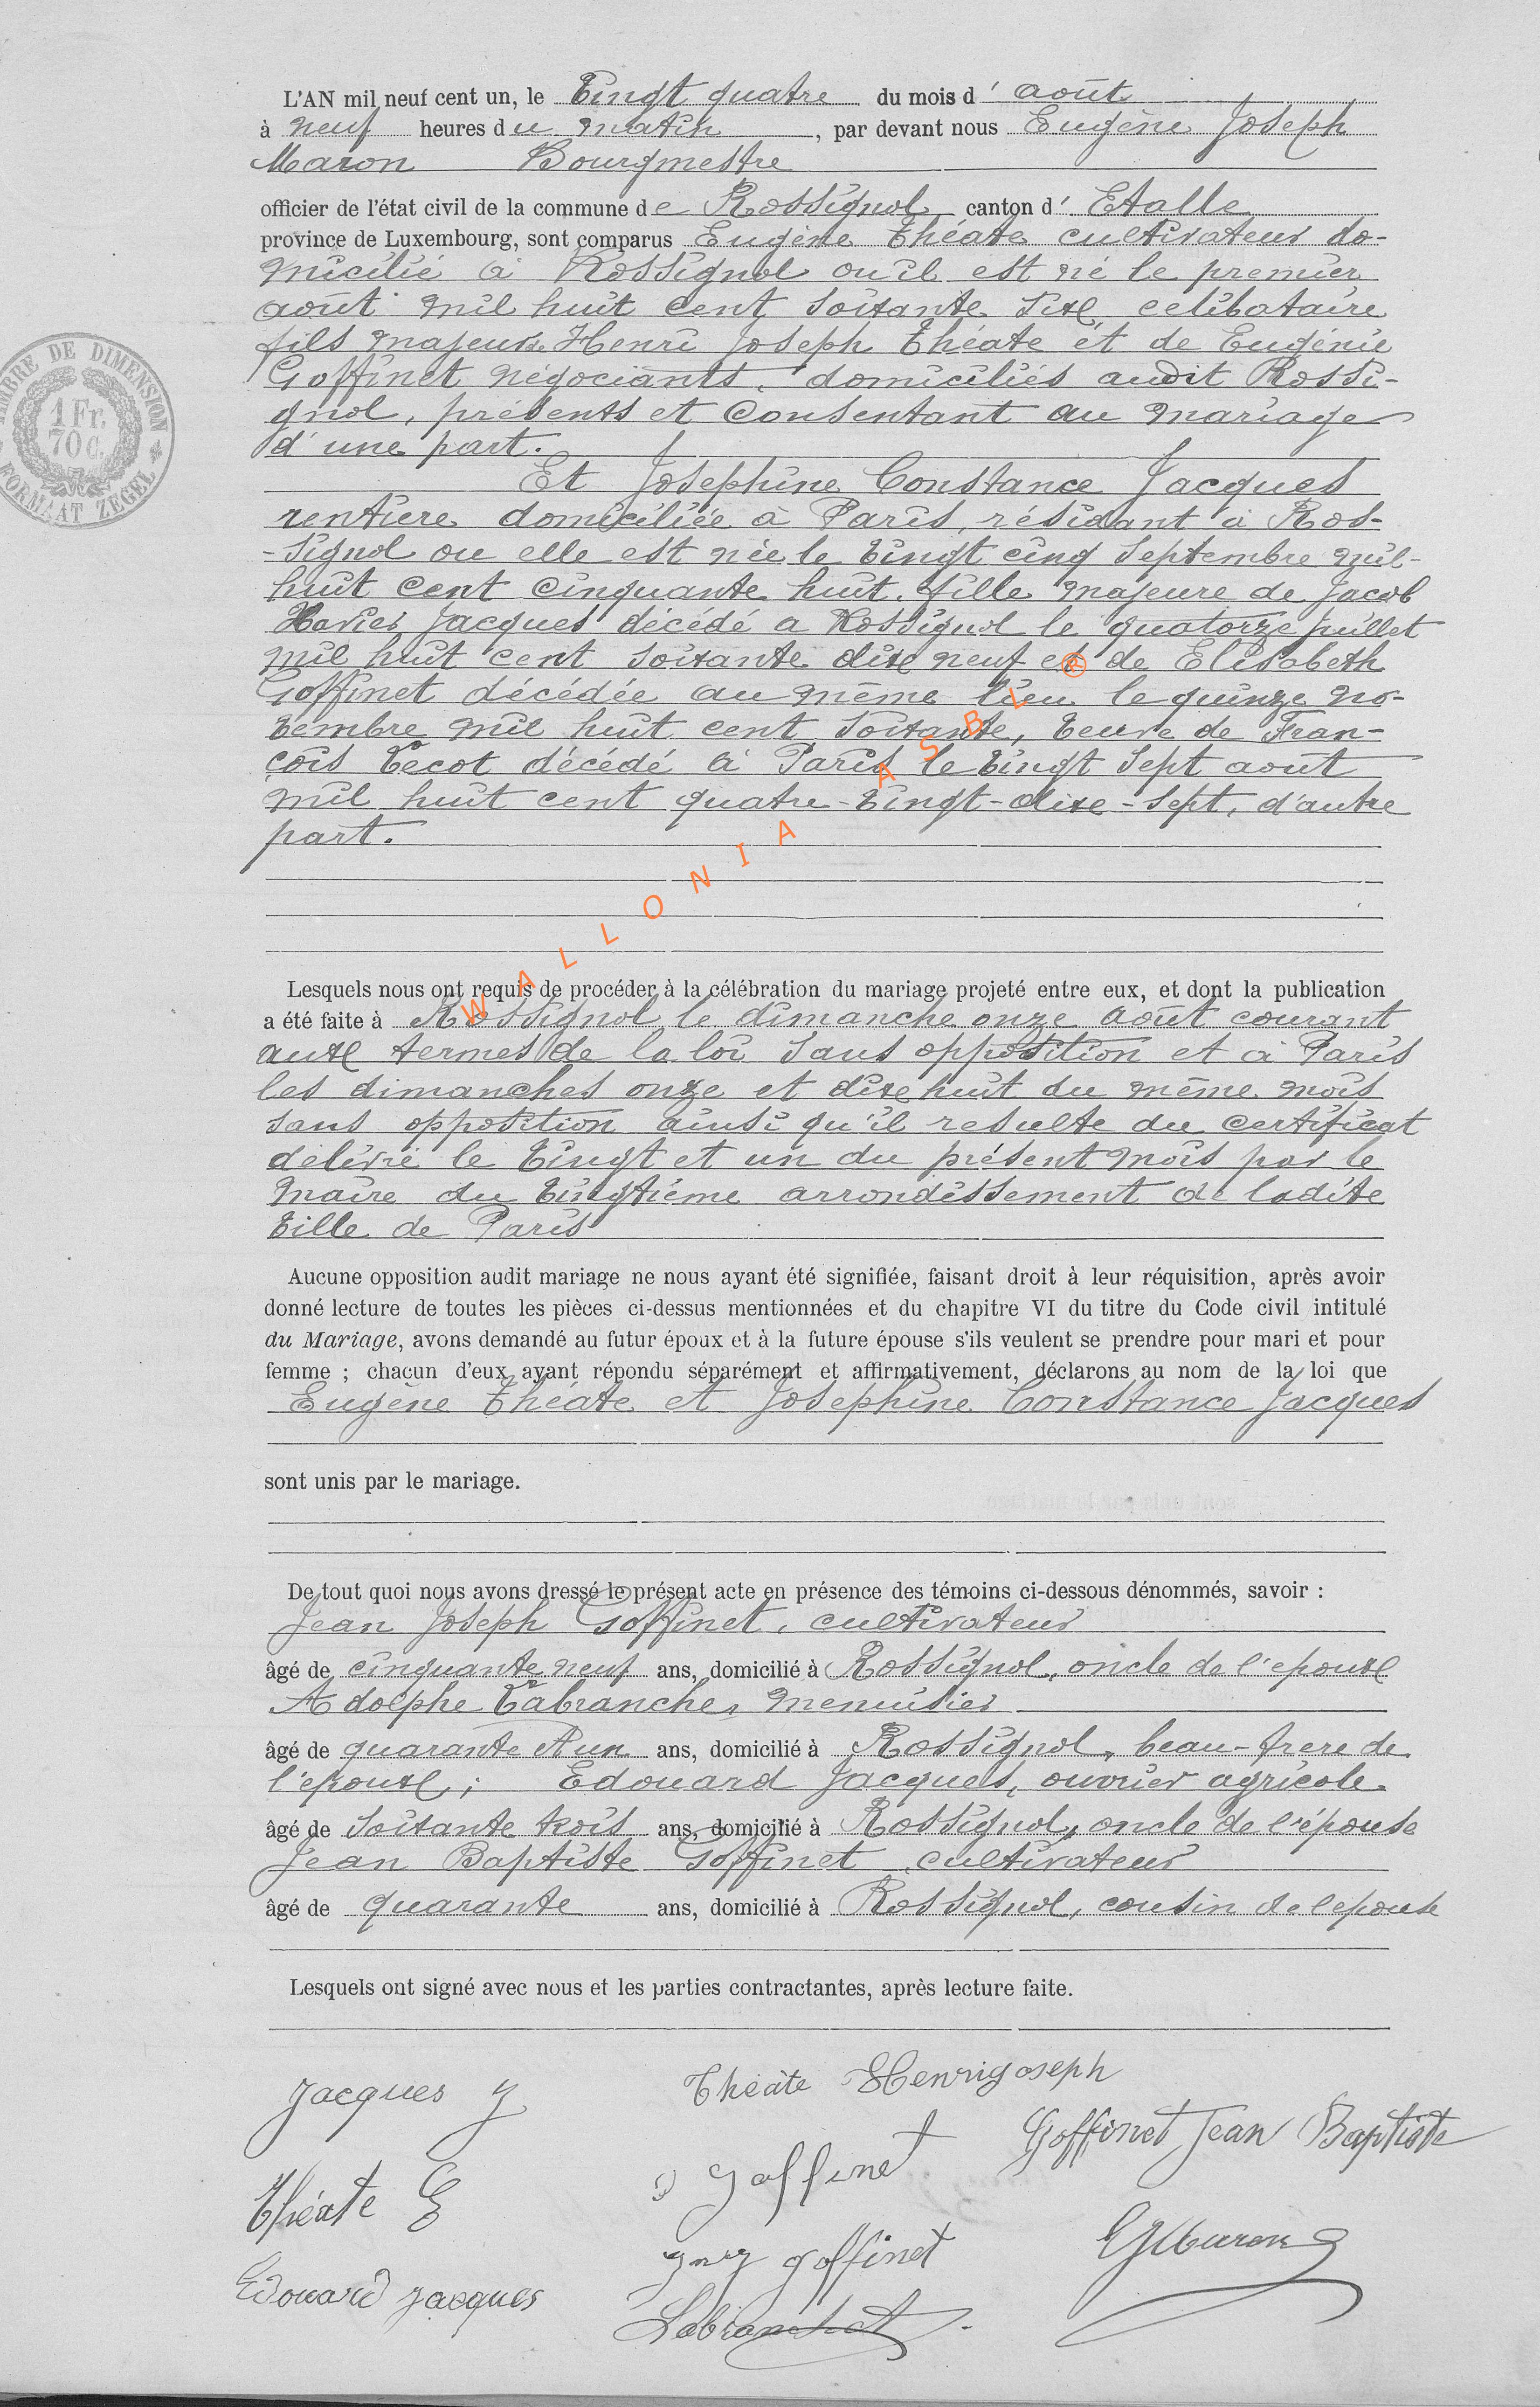 L'AN mil neuf cent un, le Vingt quatre du mois d' août
à neuf heures du matin, par devant nous Eugène Joseph
Maron Bourgmestre
officier de l'état civil de la commune de Rossignol canton d' Etalle
province de Luxembourg, sont comparus Eugène Théate cultivateur do-
micilié à Rossignol où il est né le premier
août mil huit cent soixante six, célibataire
fils majeur de Henri Joseph Théate et de Eugénie
Goffinet négociants, domiciliés audit Rossi-
gnol, présents et consentant au mariage
d'une part.
Et Joséphine Constance Jacques
rentière domiciliée à Paris, résidant à Ros-
-signol ou elle est née le vingt cinq septembre mil-
huit cent cinquante huit. fille majeure de Jacob
Xavier Jacques décédé a Rossignol le quatorze juillet
mil huit cent soixante dix neuf et de Elisabeth
Goffinet décédée au même lieu le quinze no-
vembre mil huit cent soixante, veuve de Fran-
çois Vécot décédé à Paris le vingt sept août
mil huit cent quatre-vingt-dix-sept, d'autre
part.
WALLONIA ASBL ®
Lesquels nous ont requis de procéder à la célébration du mariage projeté entre eux, et dont la publication
a été faite à Rossignol le dimanche onze août courant
aux termes de la loi sans opposition et à Paris
les dimanches onze et dix huit du même mois
sans opposition ainsi qu'il resulte du certificat
délivré le vingt et un du présent mois par le
Maire du vingtième arrondissement de ladite
Ville de Paris
Aucune opposition audit mariage ne nous ayant été signifiée, faisant droit à leur réquisition, après avoir
donné lecture de toutes les pièces ci-dessus mentionnées et du chapitre VI du titre du Code civil intitulé
du Mariage, avons demandé au futur époux et à la future épouse s'ils veulent se prendre pour mari et pour
femme ; chacun d'eux ayant répondu séparément et affirmativement, déclarons au nom de la loi que
Eugène Théate et Joséphine Constance Jacques
sont unis par le mariage.
De tout quoi nous avons dressé le présent acte en présence des témoins ci-dessous dénommés, savoir :
Jean Joseph Goffinet, cultivateur
âgé de cinquante neuf ans, domicilié à Rossignol, oncle de l'epoux
Adolphe Labranche, menuisier
âgé de quarante et un ans, domicilié à Rossignol, beau-frere de
l'epoux; Edouard Jacques, ouvrier agricole.
âgé de soixante trois ans, domicilié à Rossignol, oncle de l'épouse
Jean Baptiste Goffinet cultivateur
âgé de quarante ans, domicilié à Rossignol, cousin de l'epouse
Lesquels ont signé avec nous et les parties contractantes, après lecture faite.
Jacques J Théate Henrijoseph
Goffinet Jean Baptiste
Théate E Goffinet
Goffinet EJMaron
Edouard Jacques
TIMBRE DE DIMENSION
1 Fr.
70 C.
FORMAAT ZEGEL